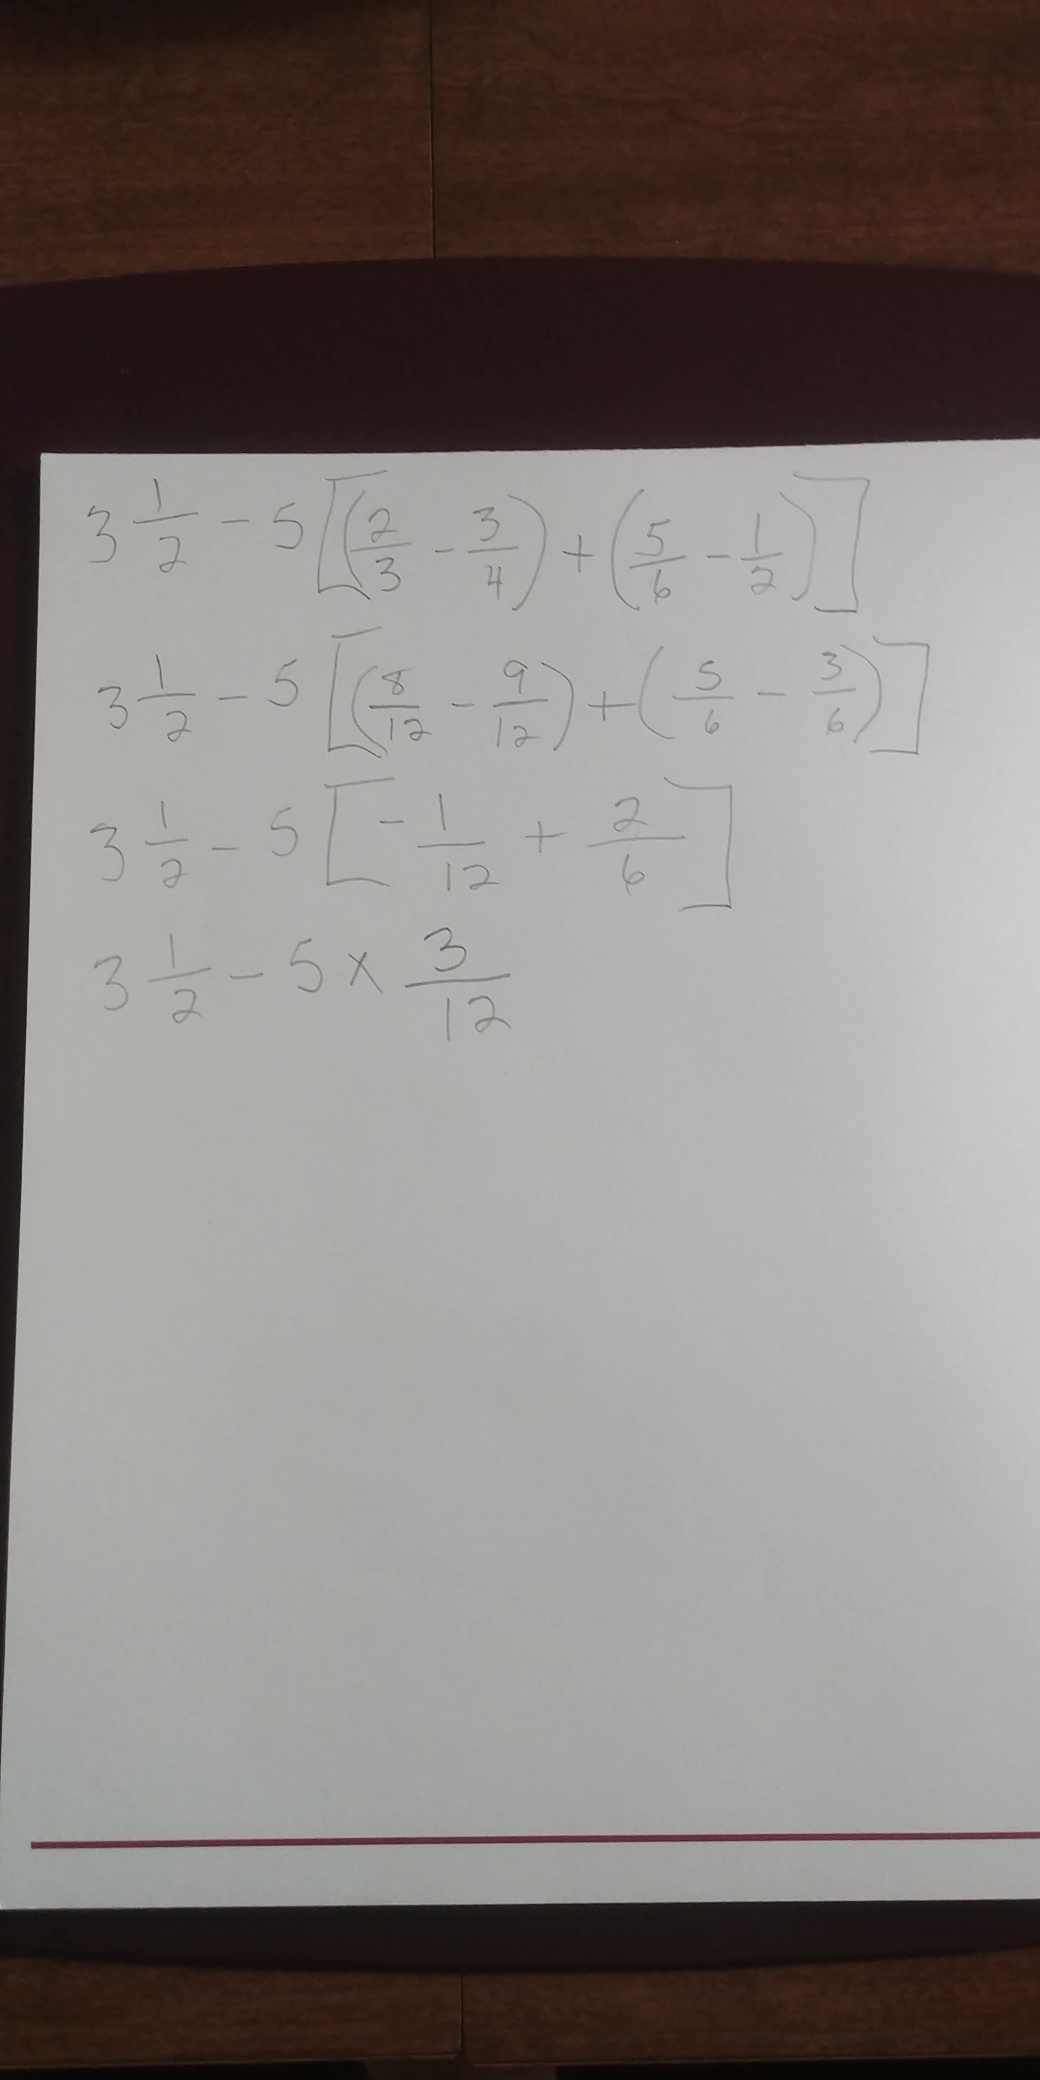 3 1/2 - 5 [(2/3 - 3/4) + (5/6 - 1/2)]
3 1/2 - 5 [(8/12 - 9/12) + (5/6 - 3/6)]
3 1/2 - 5 [- 1/12 + 2/6]
3 1/2 - 5 × 3/12